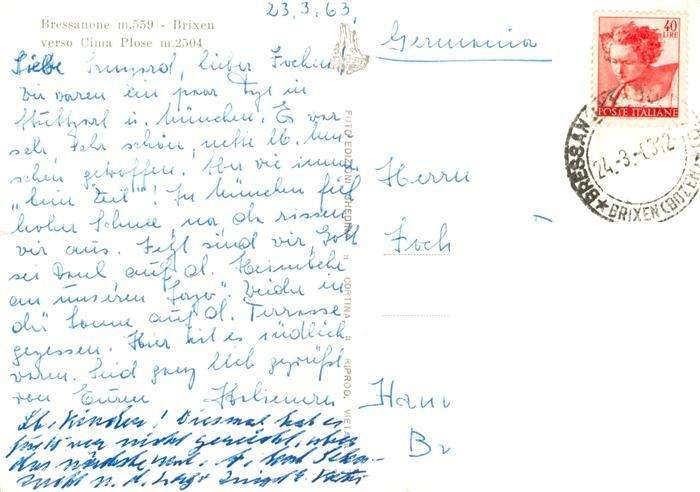 23.3.63.
Bressanone m.559 - Brixen
verso Cima Plose m.2504
Germania
40
LIRE
POSTE ITALIANE
24.-3.-63 12
BRIXEN (BOZEN)
Liebe Irmgard, lieber Jochen!
Wir waren ein paar Tage in
Stuttgart u. München. Es war
sehr, sehr schön, nette lb. Men
schen getroffen. Aber wie immer
"keine Zeit"! In München fiel
hoher Schnee, na, da rissen
wir aus. Jetzt sind wir, Gott
sei Dank auf d. Heimkehr
an unseren "Lago". Beide in
der Sonne auf d. Terrasse
gegessen. Hier ist es südlich
warm. Seid ganz lieb gegrüßt
von Euren
Lb. Kinder! Diesmal hat es
nicht gereicht, aber
das nächste mal.
sucht n. d. Lago
FOTOEDIZIONI GHEDINA - CORTINA - RIPROD. VIET
Herrn
Joch
Hann
Br